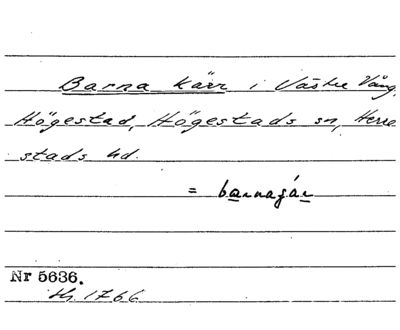 Barna kärr i Västre Vång,
Högestad, Högestads sn, Herre
stads hd.
= barnaɡár
Nr 5636.
1766